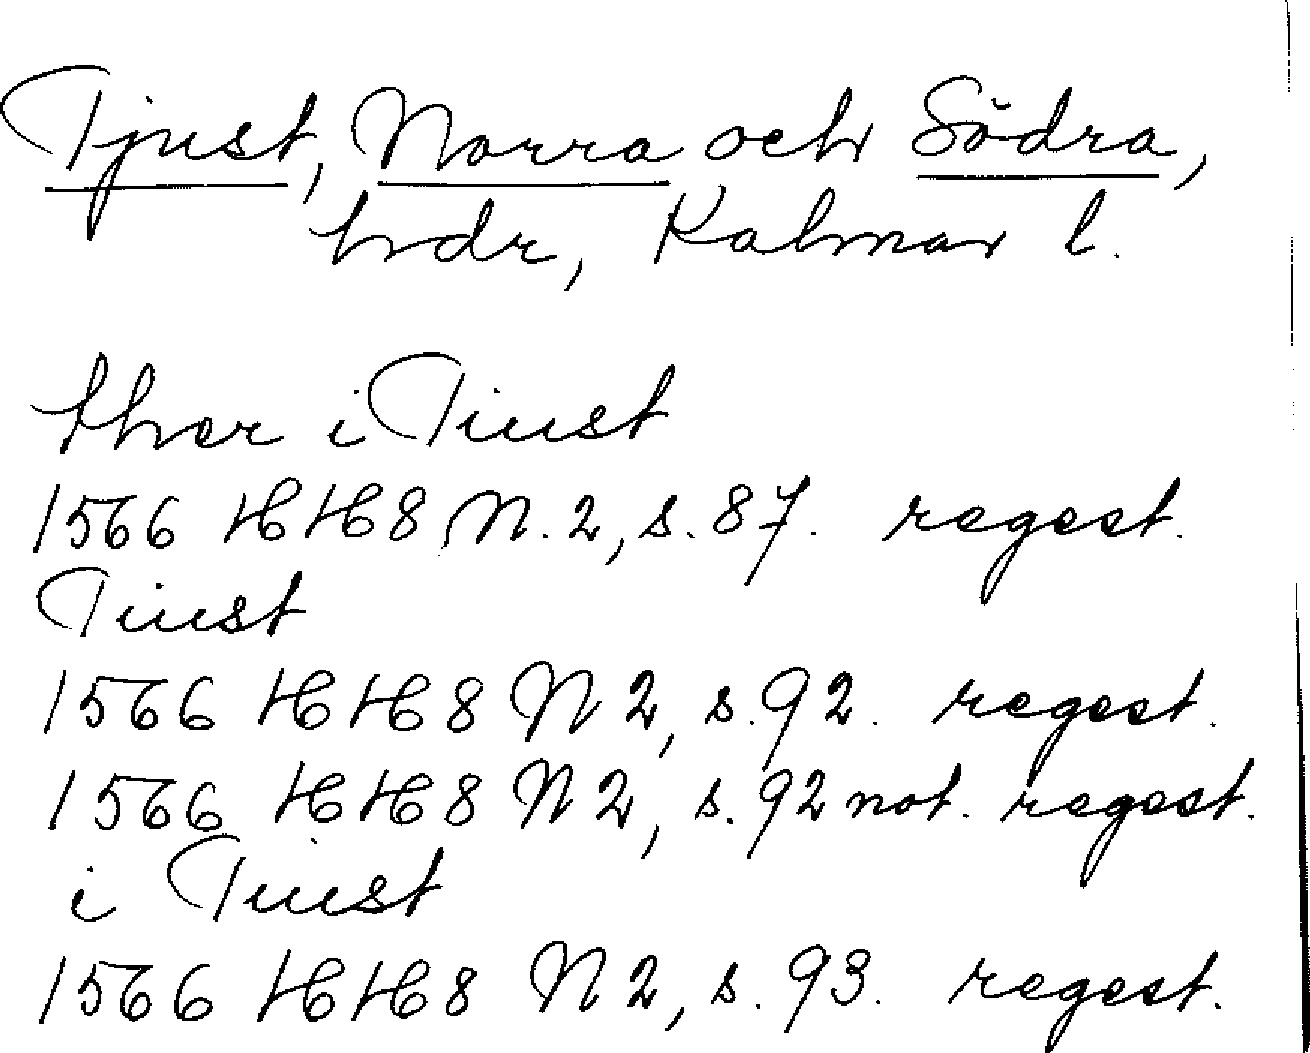 Tjust, Norra och Södra,
hdr, Kalmar l.
ther i Tiust
1566 HH 8 N. 2, s. 87. regest.
Tiust
1566 HH 8 N 2, s. 92. regest.
1566 HH 8 N 2, s. 92 not. regest.
i Tiust
1566 HH 8 N 2, s. 93. regest.